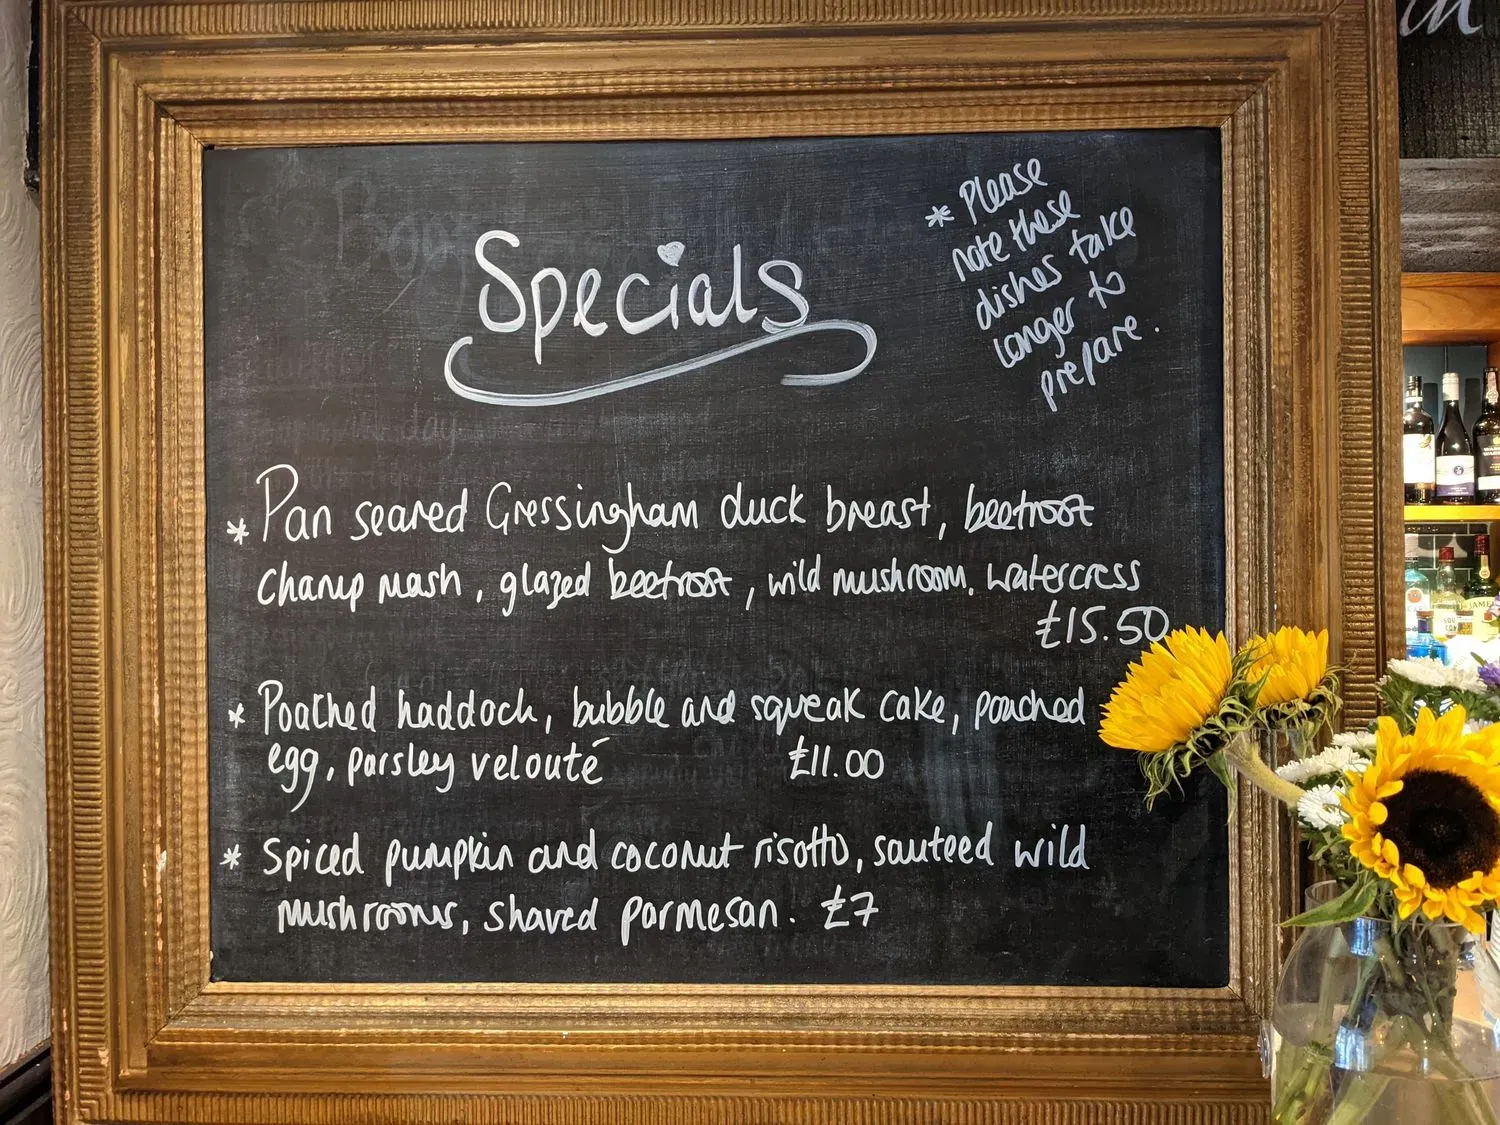 Specials
* Please
note these
dishes take
longer to
prepare.
* Pan seared Gressingham duck breast, beetroot
champ mash, glazed beetroot, wild mushroom. watercress
£15.50
* Poached haddock, bubble and squeak cake, poached
egg, parsley velouté £11.00
* Spiced pumpkin and coconut risotto, sauteed wild
mushrooms, shaved parmesan. £7